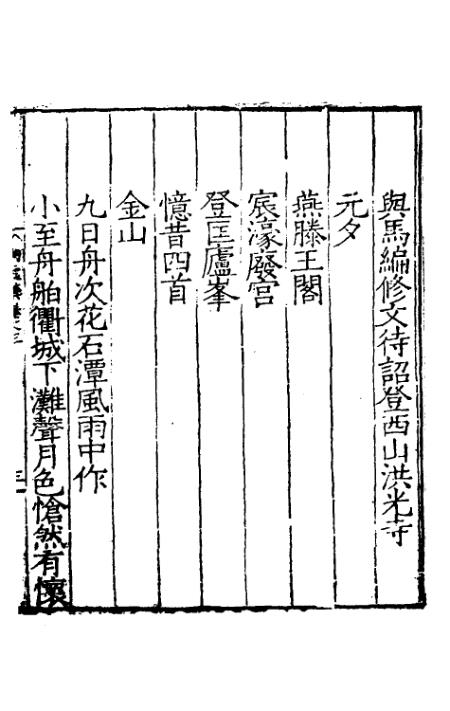 與馬編修文待詔登西山洪光寺
元夕
燕滕王閣
宸濠廢宮
登匡廬峯
憶昔四首
金山
九日舟次花石潭風雨中作
小至舟舶衢城下灘聲月色愴然有懷